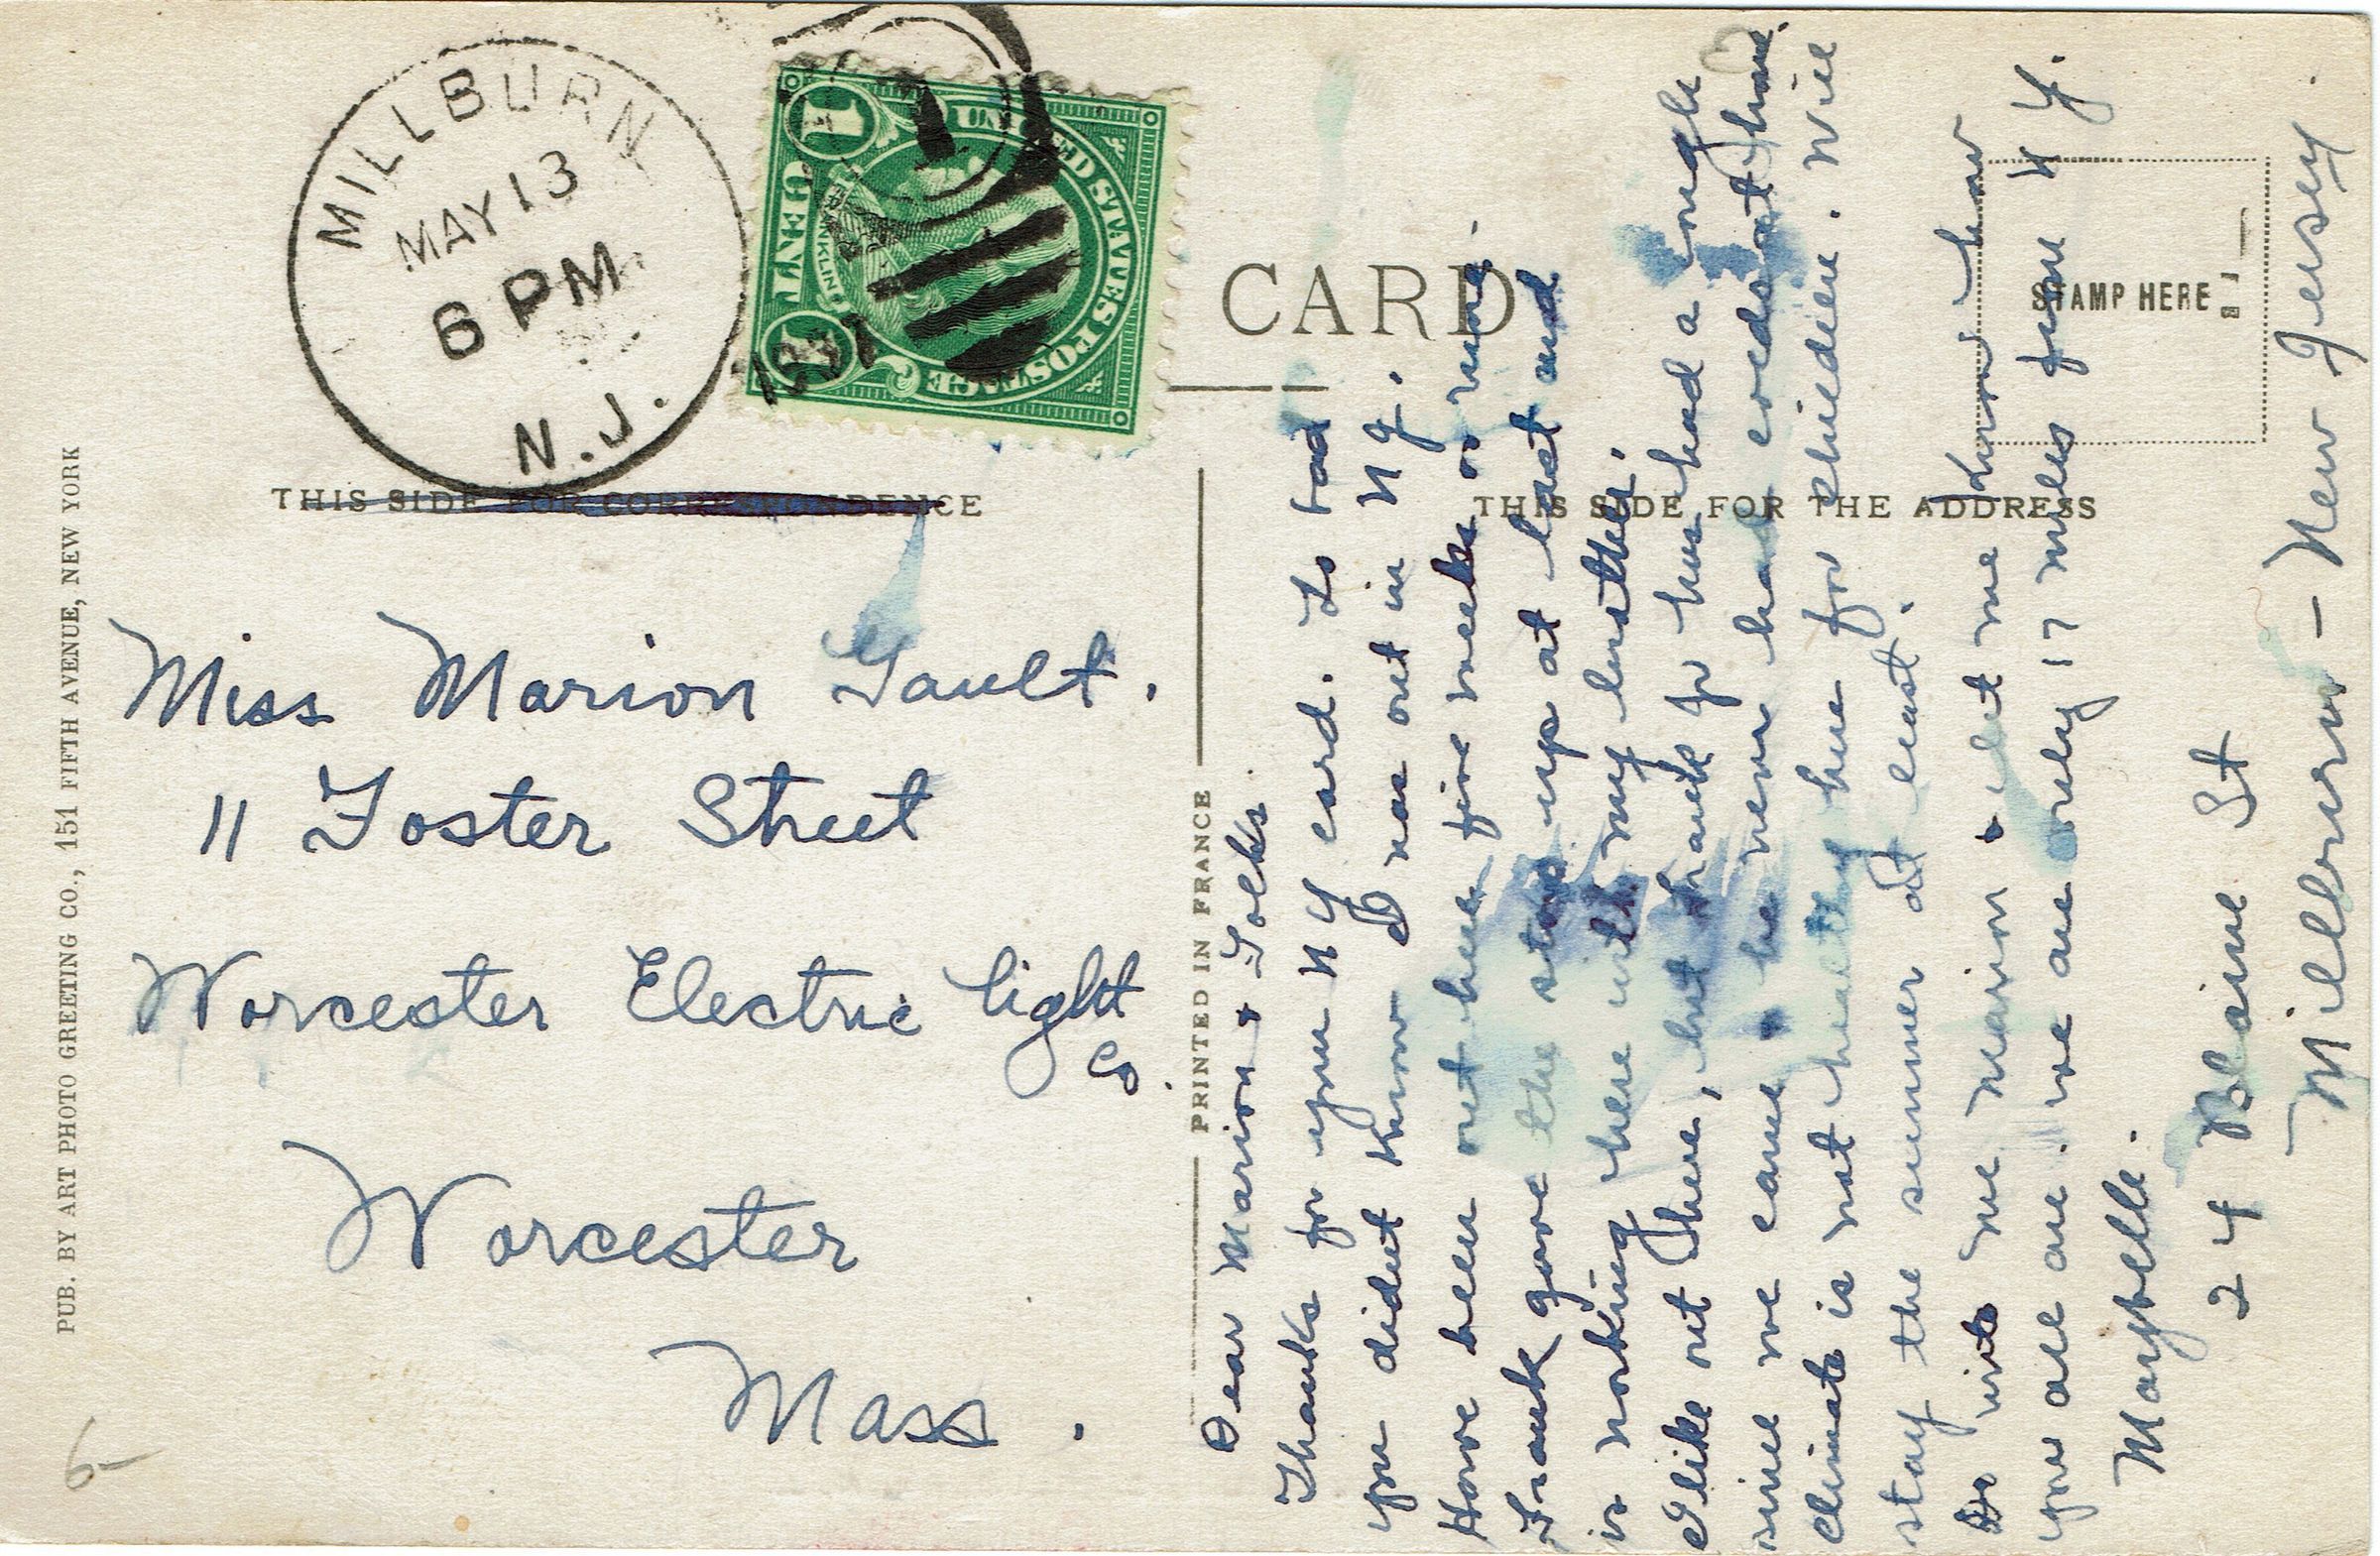 MILLBURN
MAY 13
6 PM
N.J.
1937
UNITED STATES POSTAGE
FRANKLIN
1 CENT 1
CARD
THIS SIDE FOR CORRESPONDENCE
THIS SIDE FOR THE ADDRESS
STAMP HERE
PUB. BY ART PHOTO GREETING CO., 151 FIFTH AVENUE, NEW YORK
PRINTED IN FRANCE
Miss Marion Gault.
11 Foster Street
Worcester Electric Light
Worcester
Mass.
6-
Dear Marion & Folks.
Thanks for your N Y card. To bad
you didnt know I was out in N J.
Have been out here five weeks or more.
Frank gave the store up at last and
is working here with my brother.
I like out here, but thanks for have had a cough
since we came & he never had crods at home.
Climate is not healthy here for children. Will
stay the summer at least.
Do write me Marion & let me know how
you all are. we are only 17 miles from N Y.
Marybelle.
24 Blaine St
Millburn - New Jersey.